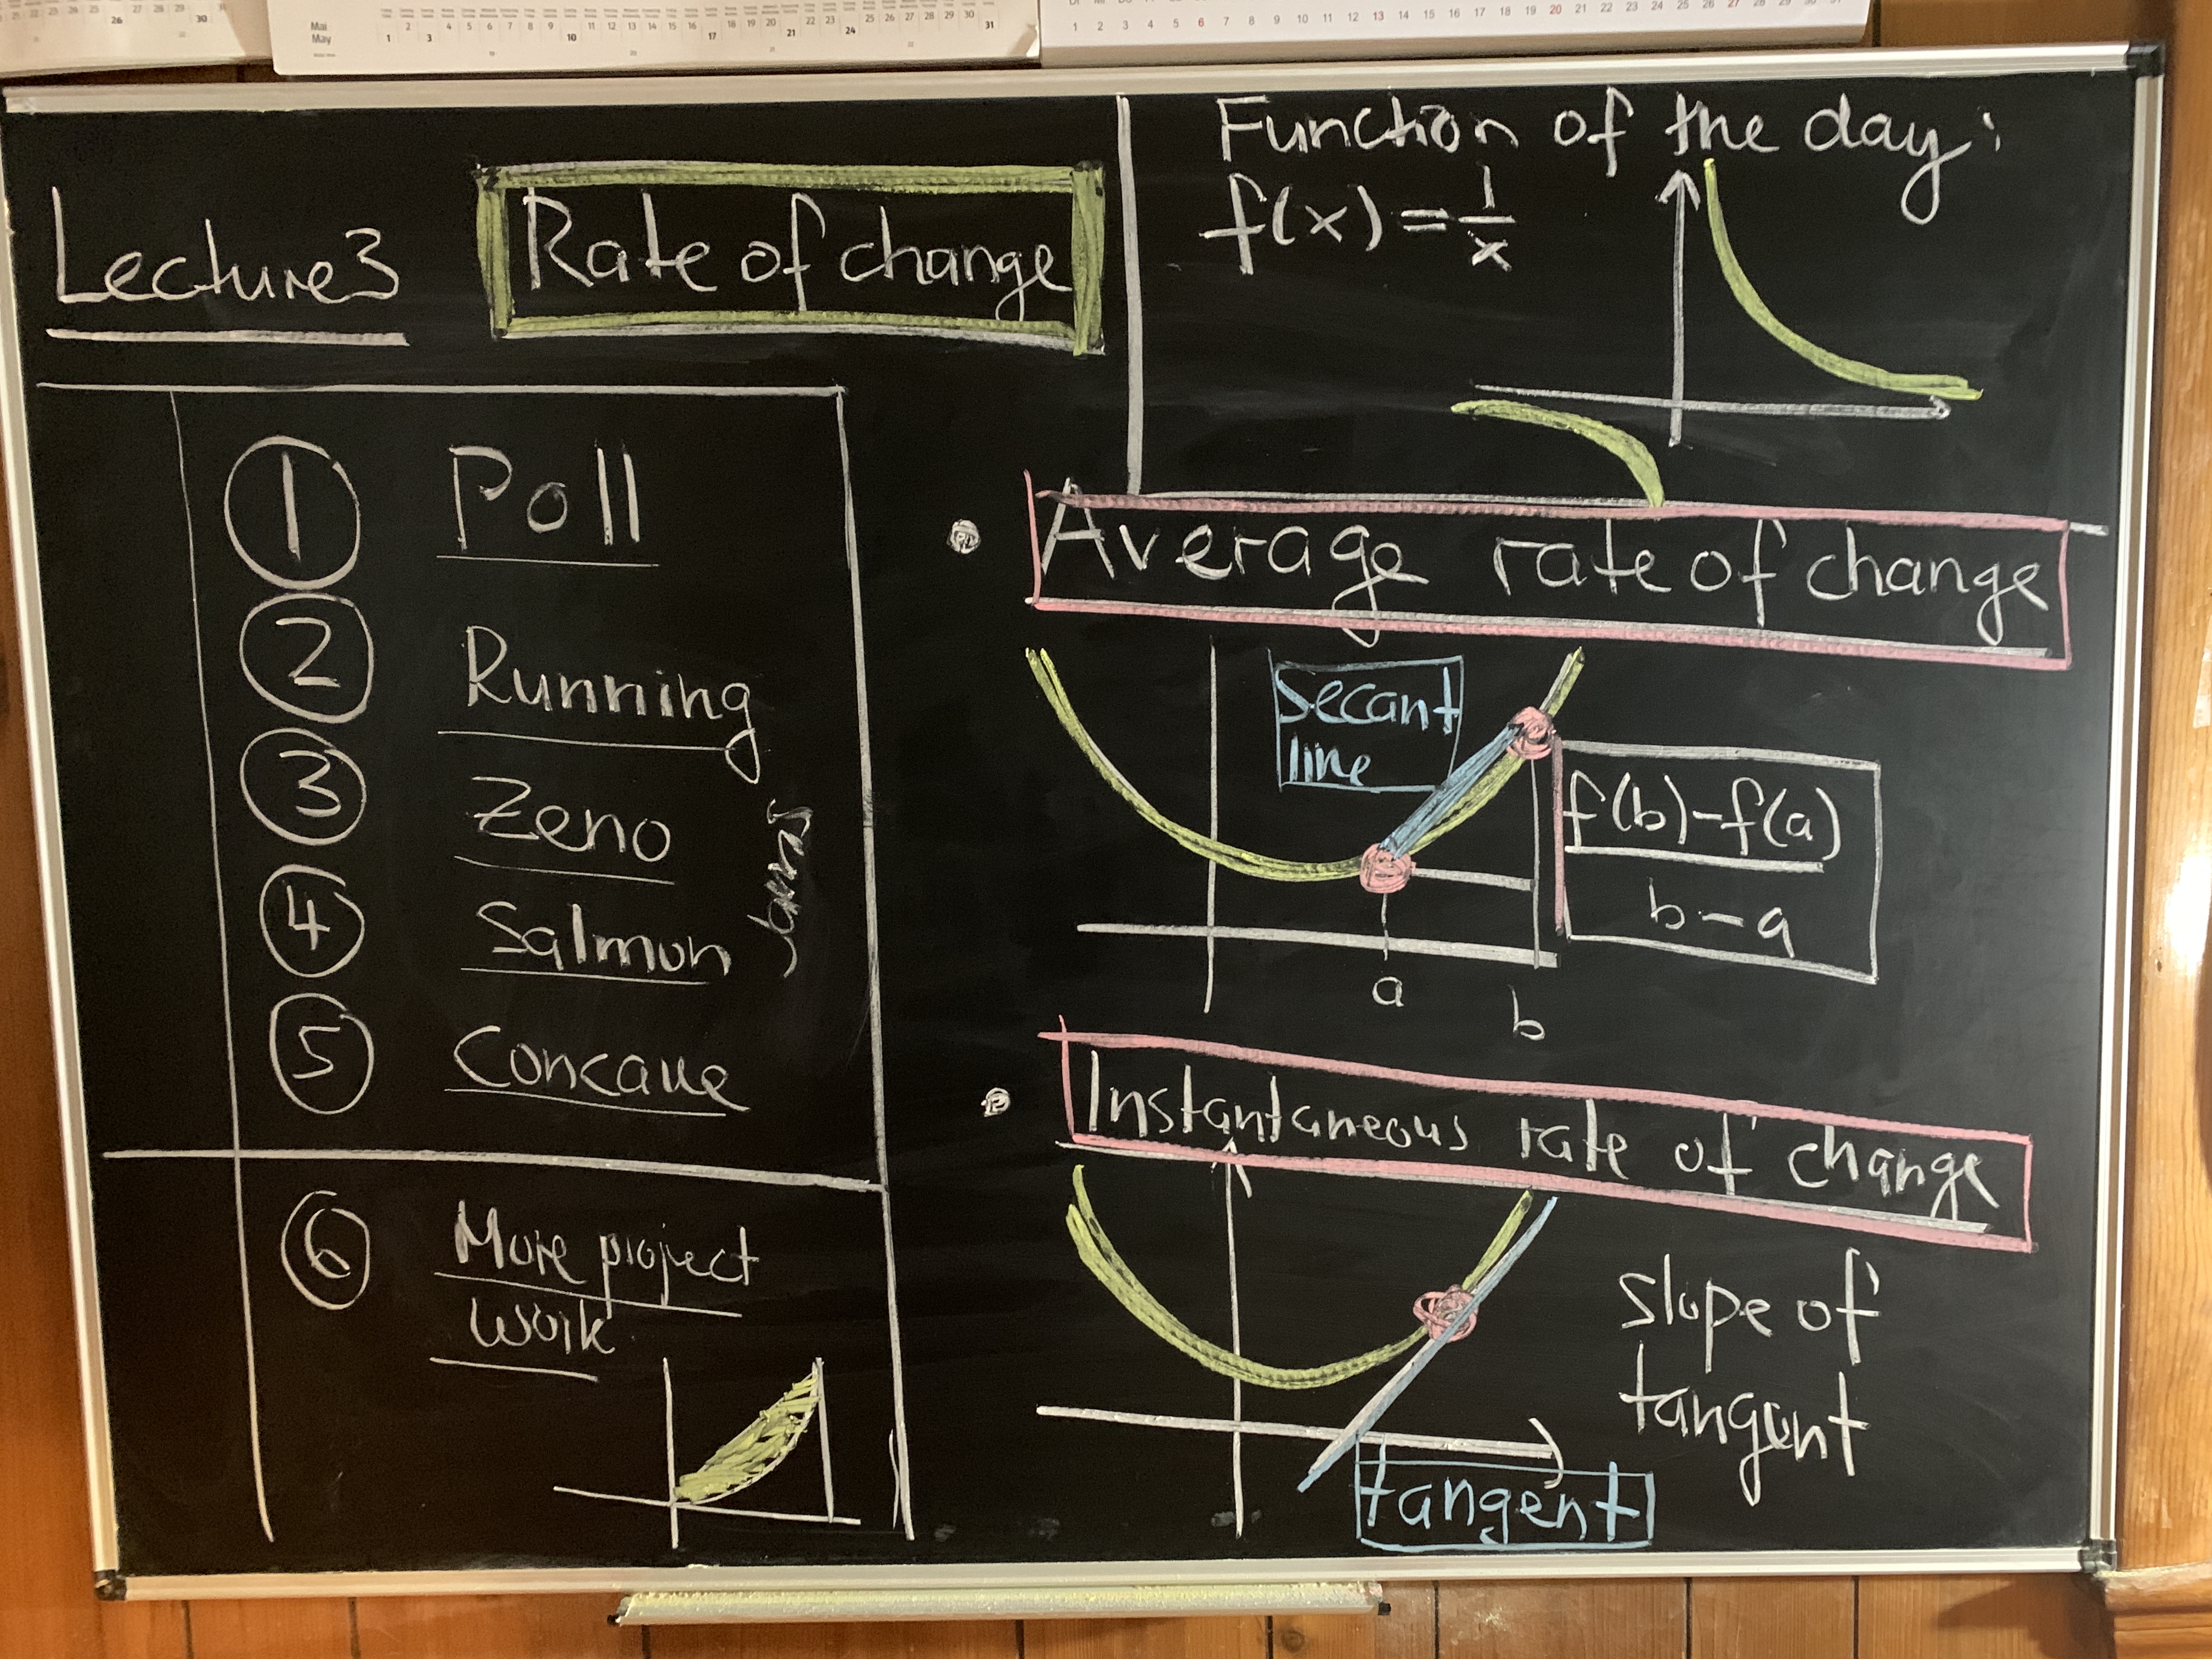 Mai
May
Lecture 3
Rate of change
Function of the day:
f(x) = 1/x
1 Poll
2 Running
3 Zeno
4 Salmon
5 Concave
6 More project
work
Average rate of change
secant
line
f(b)-f(a)
b-a
a
b
Instantaneous rate of change
slope of
tangent
tangent